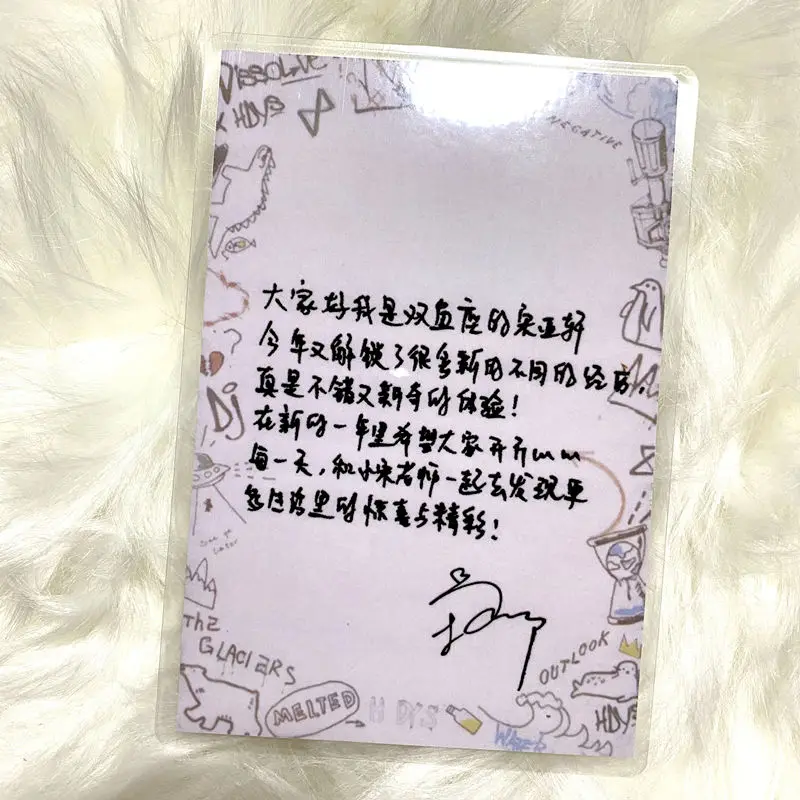 DISSOLVE
HDYS
NEGATIVE
大家好我是双鱼座的宋亚轩
今年又解锁了很多新的不同的经历,
真是不错又新奇的体验!
在新的一年里希望大家开开心心
每一天,和小宋老师一起去发现更
多生活里的惊喜与精彩!
Dj
THE
GLACIERS
MELTED
HDYS
OUTLOOK
WATER
HDYS